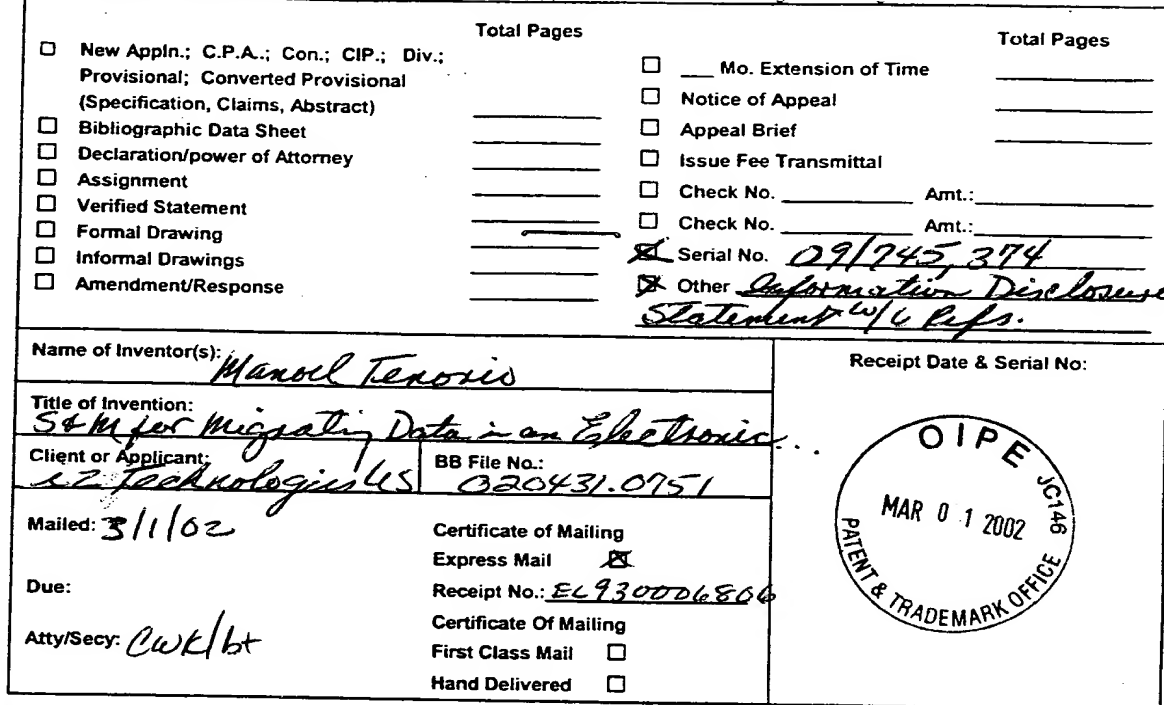 Total Pages
☐ New Appln.; C.P.A..; Con.; CIP.; Div.;
Provisional; Converted Provisional
(Specification, Claims, Abstract)
☐ Bibliographic Data Sheet
☐ Declaration/power of Attorney
☐ Assignment
☐ Verified Statement
☐ Formal Drawing
☐ Informal Drawings
☐ Amendment/Response
Total Pages
☐ ___ Mo. Extension of Time
☐ Notice of Appeal
☐ Appeal Brief
☐ Issue Fee Transmittal
☐ Check No. Amt.:
☐ Check No. Amt.:
☒ Serial No. 09/745,374
☒ Other Information Disclosure
Statement w/6 Refs.
Name of Inventor(s): Manoel Tenorio
Title of Invention:
S&M for Migrating Data in an Electronic...
Client or Applicant:
i2 Technologies US
BB File No.:
020431.0751
Mailed: 3/1/02
Due:
Atty/Secy: CWK/bt
Certificate of Mailing
Express Mail ☒
Receipt No.: EL930006806
Certificate Of Mailing
First Class Mail ☐
Hand Delivered ☐
Receipt Date & Serial No:
OIPE JC146
MAR 0 1 2002
PATENT & TRADEMARK OFFICE